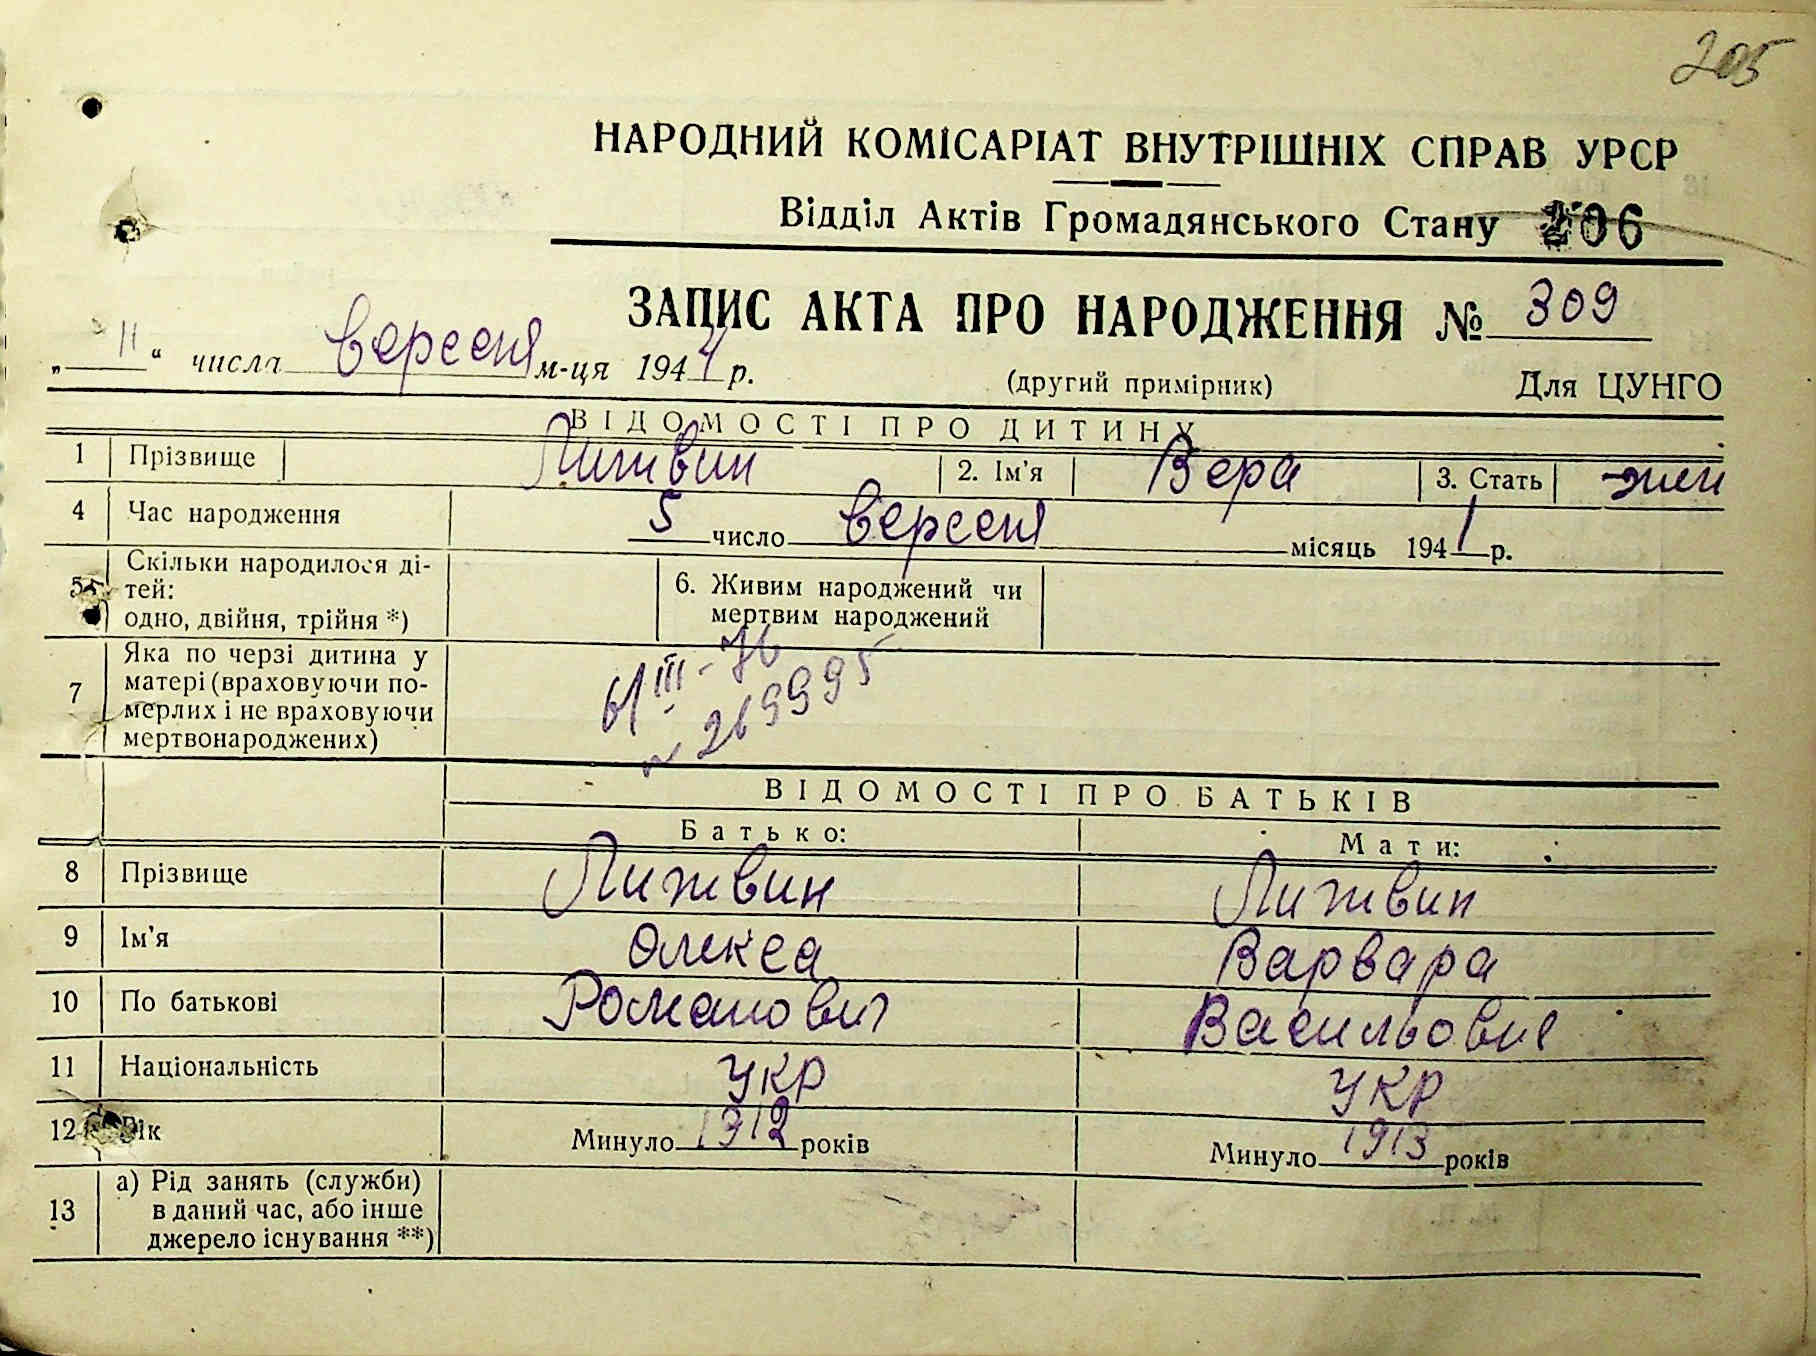 205
НАРОДНИЙ КОМІСАРІАТ ВНУТРІШНІХ СПРАВ УРСР
Відділ Актів Громадянського Стану 206
ЗАПИС АКТА ПРО НАРОДЖЕННЯ № 309
„ 11 “ числа вересня м-ця 194 р.
(другий примірник) Для ЦУНГО
ВІДОМОСТІ ПРО ДИТИНУ
1 Прізвище Литвин 2. Ім'я Вера 3. Стать жен
4 Час народження 5 число вересня місяць 1941 р.
5 Скільки народилося ді-
тей:
одно, двійня, трійня *)
6. Живим народжений чи
мертвим народжений
7 Яка по черзі дитина у
матері (враховуючи по-
мерлих і не враховуючи
мертвонароджених)
III-76
269995
ВІДОМОСТІ ПРО БАТЬКІВ
Батько: Мати:
8 Прізвище Литвин Литвин
9 Ім'я Олекса Варвара
10 По батькові Романович Васильовне
11 Національність УКР УКР
12 Вік Минуло 1912 років Минуло 1913 років
13 а) Рід занять (служби)
в даний час, або інше
джерело існування **)